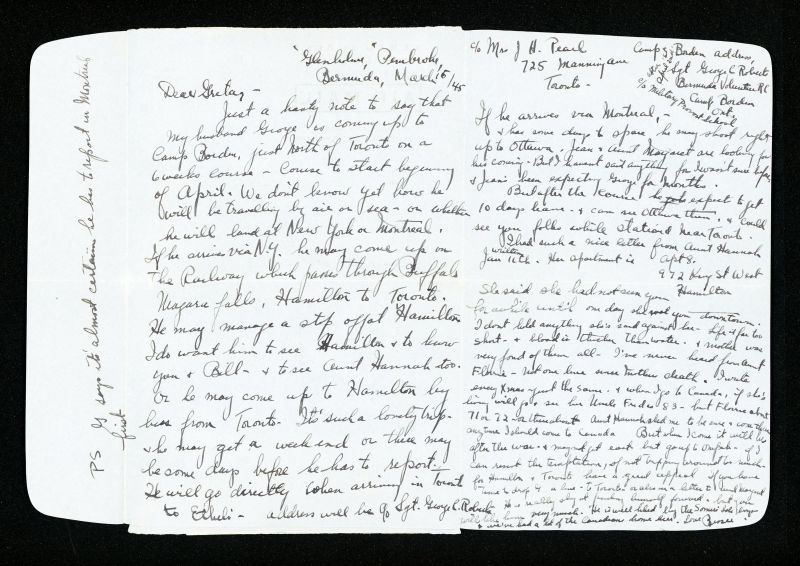 "Glenholme," Pembroke,
Bermuda, March 15/45
Dear Greta, -
Just a hasty note to say that
my husband George is coming up to
Camp Borden, just North of Toronto on a
6 weeks course - course to start beginning
of April. We don't know yet how he
will be travelling by air or sea - or whether
he will land at New York or Montreal.
If he arrives via N.Y. he may come up on
the Railway which passes through Buffalo
Niagara falls, Hamilton to Toronto.
He may manage a stop off at Hamilton
I do want him to see Hamilton & to know
you & Bill - & to see Aunt Hannah too.
Or he may come up to Hamilton by
bus from Toronto. It's such a lovely trip -
& he may get a weekend or there may
be some days before he has to report.
He will go directly when arriving in Toronto
to Ethel's - address will be c/o Sgt. George C. Roberts
c/o Mrs J H. Pearl
725 Manning Ave
Toronto.
Camp Borden address,
Sgt George C Roberts
Bermuda Volunteer R.C
c/o Military School
Camp Borden
Ont.
If he arrives via Montreal, -
& has some days to spare he may shoot right
up to Ottawa. Jean & Aunt Margaret are looking for
his coming. But I havent said anything for I wasn't sure before
& Jean's been expecting George for months.
But after the course he expect to get
10 days leave - & can see Ottawa then, & could
see you folks while stationed near Toronto.
I had such a nice letter from Aunt Hannah
written Jan 10th. Her apartment is Apt 8.
972 King St West
Hamilton
She said she had not seen you
for awhile until one day she saw you downtown.
I don't hold anything she's said against her - Life is far too
short - & blood is thicker than water. & mother was
very fond of them all - I've never heard from Aunt
Florrie - not one line since Mother's death. I wrote
every Xmas just the same. & when I go to Canada, if she's
living will go & see her Uncle Fred is 83 - but Florrie about
71 or 72 - or thereabouts Aunt Hannah asked me to be sure & come there
anytime I should come to Canada But when I come it will be
after the war - & may not get east but going to Ontario - if I
can resist the temptation, of not tripping around too much -
for Hamilton & Toronto have a great appeal If you have
time to drop in a line - to Toronto
He is really shy at pushing himself forward - but you
will like him very much. He is well liked by the
& we've had a lot of the Canadian here. Love
PS G says its almost certain he has to report in Montreal
first.